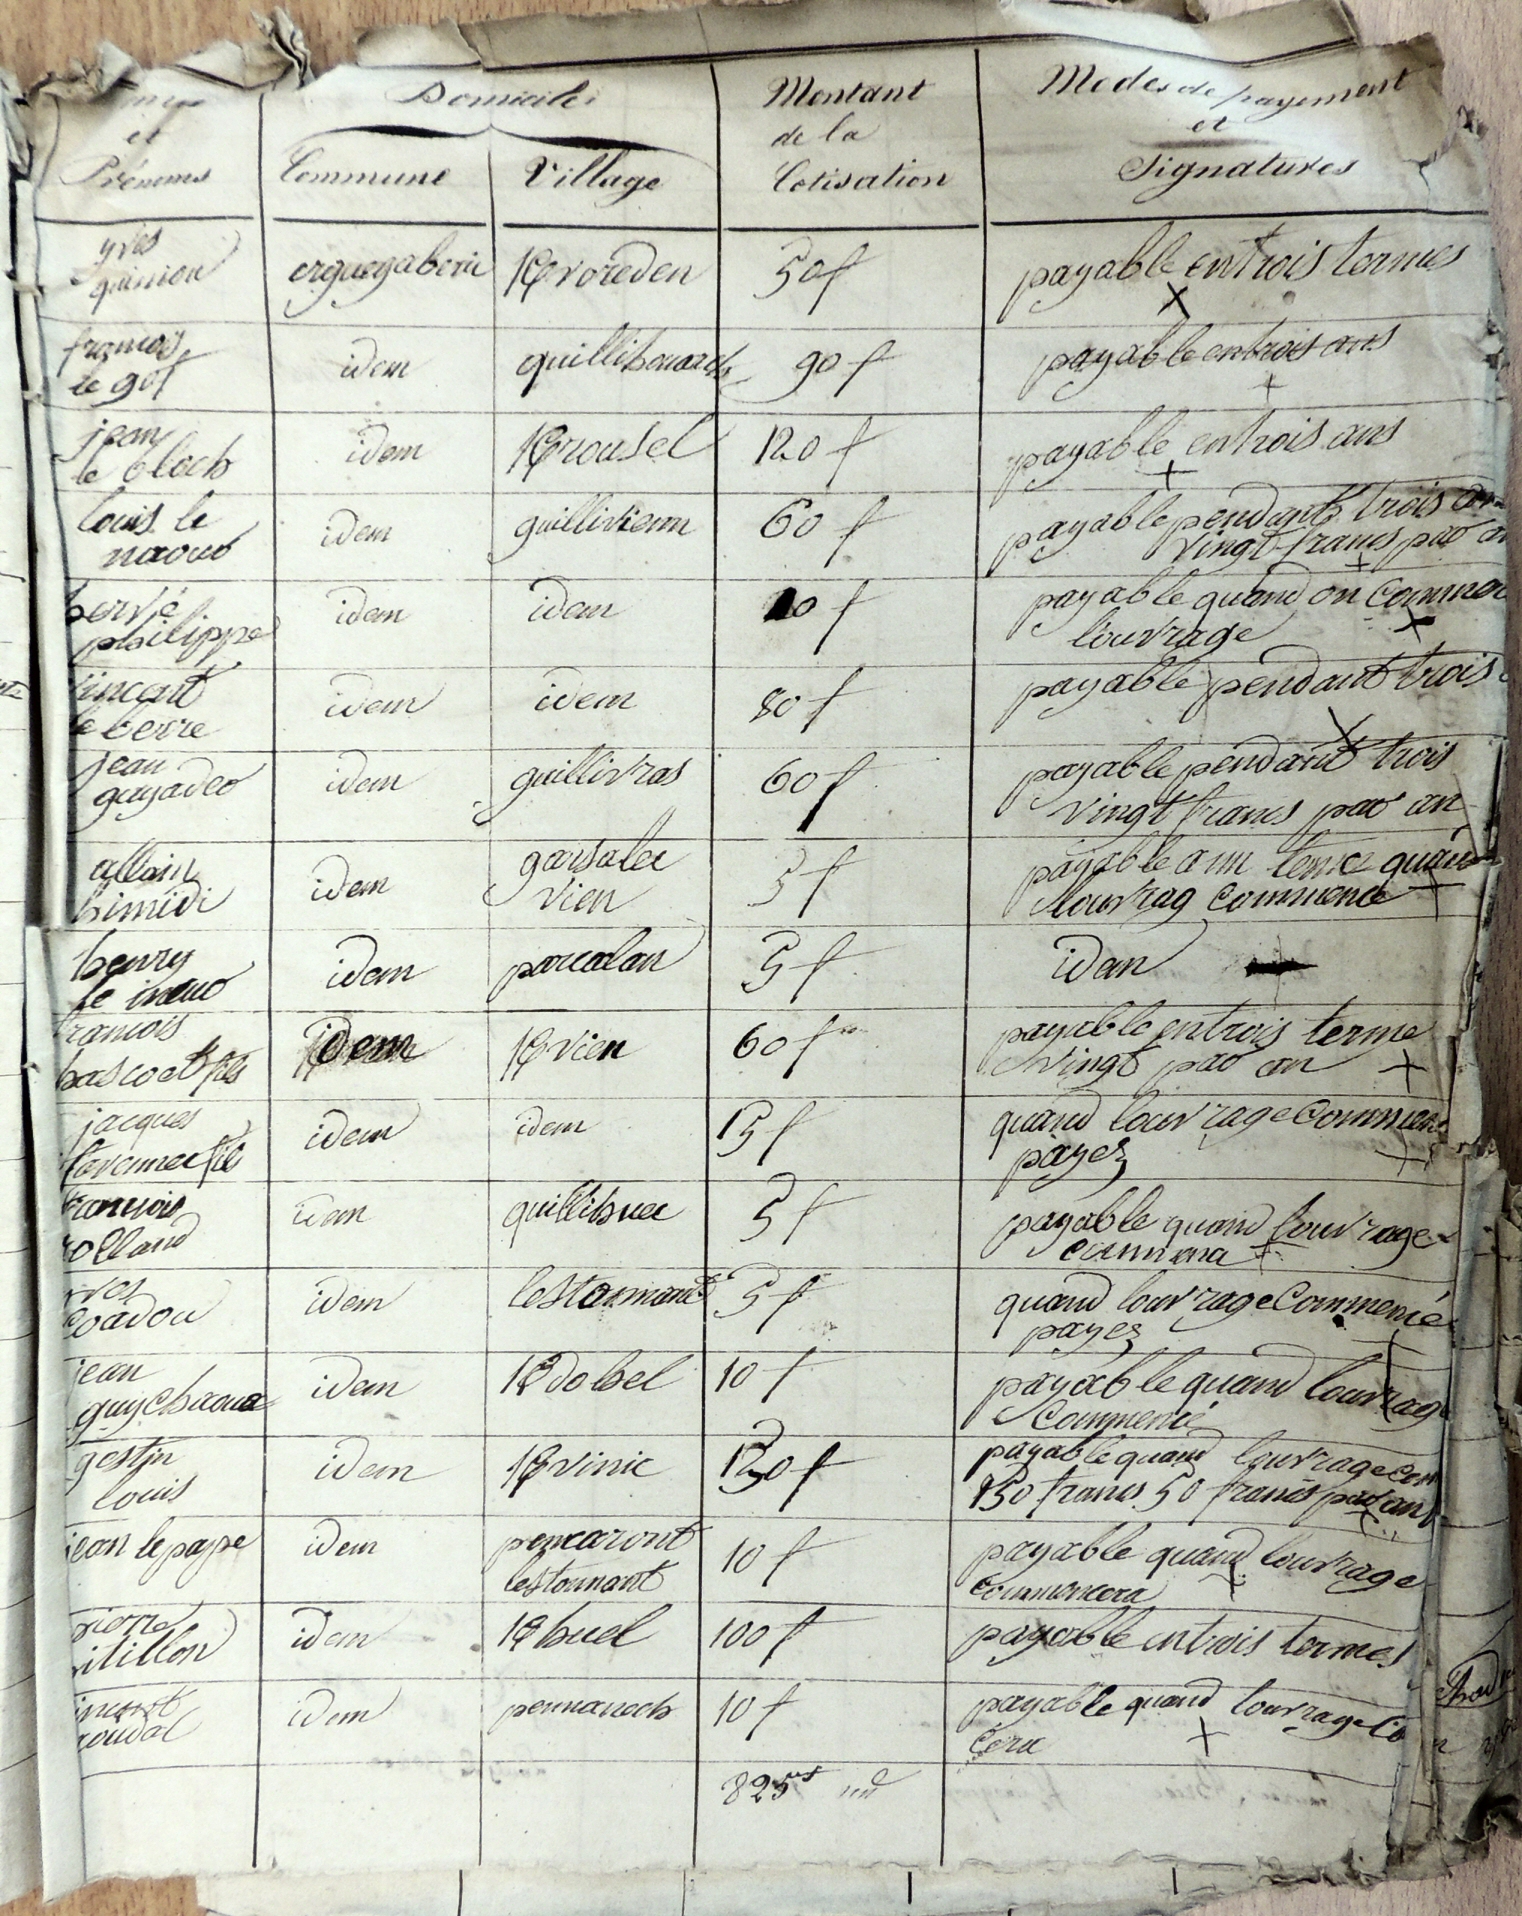 et
Prénoms
Domicile
Commune
Village
Montant
de la
Cotisation
Modes de payement
et
Signatures
yves
quinion
erguegaberic
Kvoreden
50 f
payable entrois termes
X
francois
le gof
idem
quillihouarch
90 f
payable entrois ans
+
jean
le bloch
idem
Krousel
120 f
payable entrois ans
+
louis le
naour
idem
guillivienn
60 f
payable pendant trois
vingt francs par
+
hervé
philippe
idem
idem
10 f
payable quand on commen
louvrage
+
vincent
le berre
idem
idem
80 f
payable pendant trois
X
jean
guyader
idem
guillivras
60 f
payable pendant trois
vingt francs par an
allain
himidi
idem
garsalec
vien
5 f
payable a un terme quand
louvrag commence
+
henry
le
idem
parcalan
5 f
idem
francois
hascoet fils
idem
Kvien
60 f
payable entrois terme
vingt par an
+
jacques
fils
idem
idem
15 f
quand louvrage commen
payez
+
francois
rolland
idem
quillihuec
5 f
payable quand louvrage
+
yves
coadou
idem
lestonnant
5 f
quand louvrage Commencé
payez
+
jean
idem
Kdohel
10 f
payable quand louvrage
Commencé
gestin
louis
idem
Kvinic
150 f
payable quand louvrage com
150 francs 50 francs par an
+
jean le pape
idem
pencaront
lestonnant
10 f
payable quand louvrage
commencera
+
pierre
pitillon
idem
Khuel
100 f
payable entrois termes
vincent
idem
pennanech
10 f
payable quand louvrage Co
cera
+
825